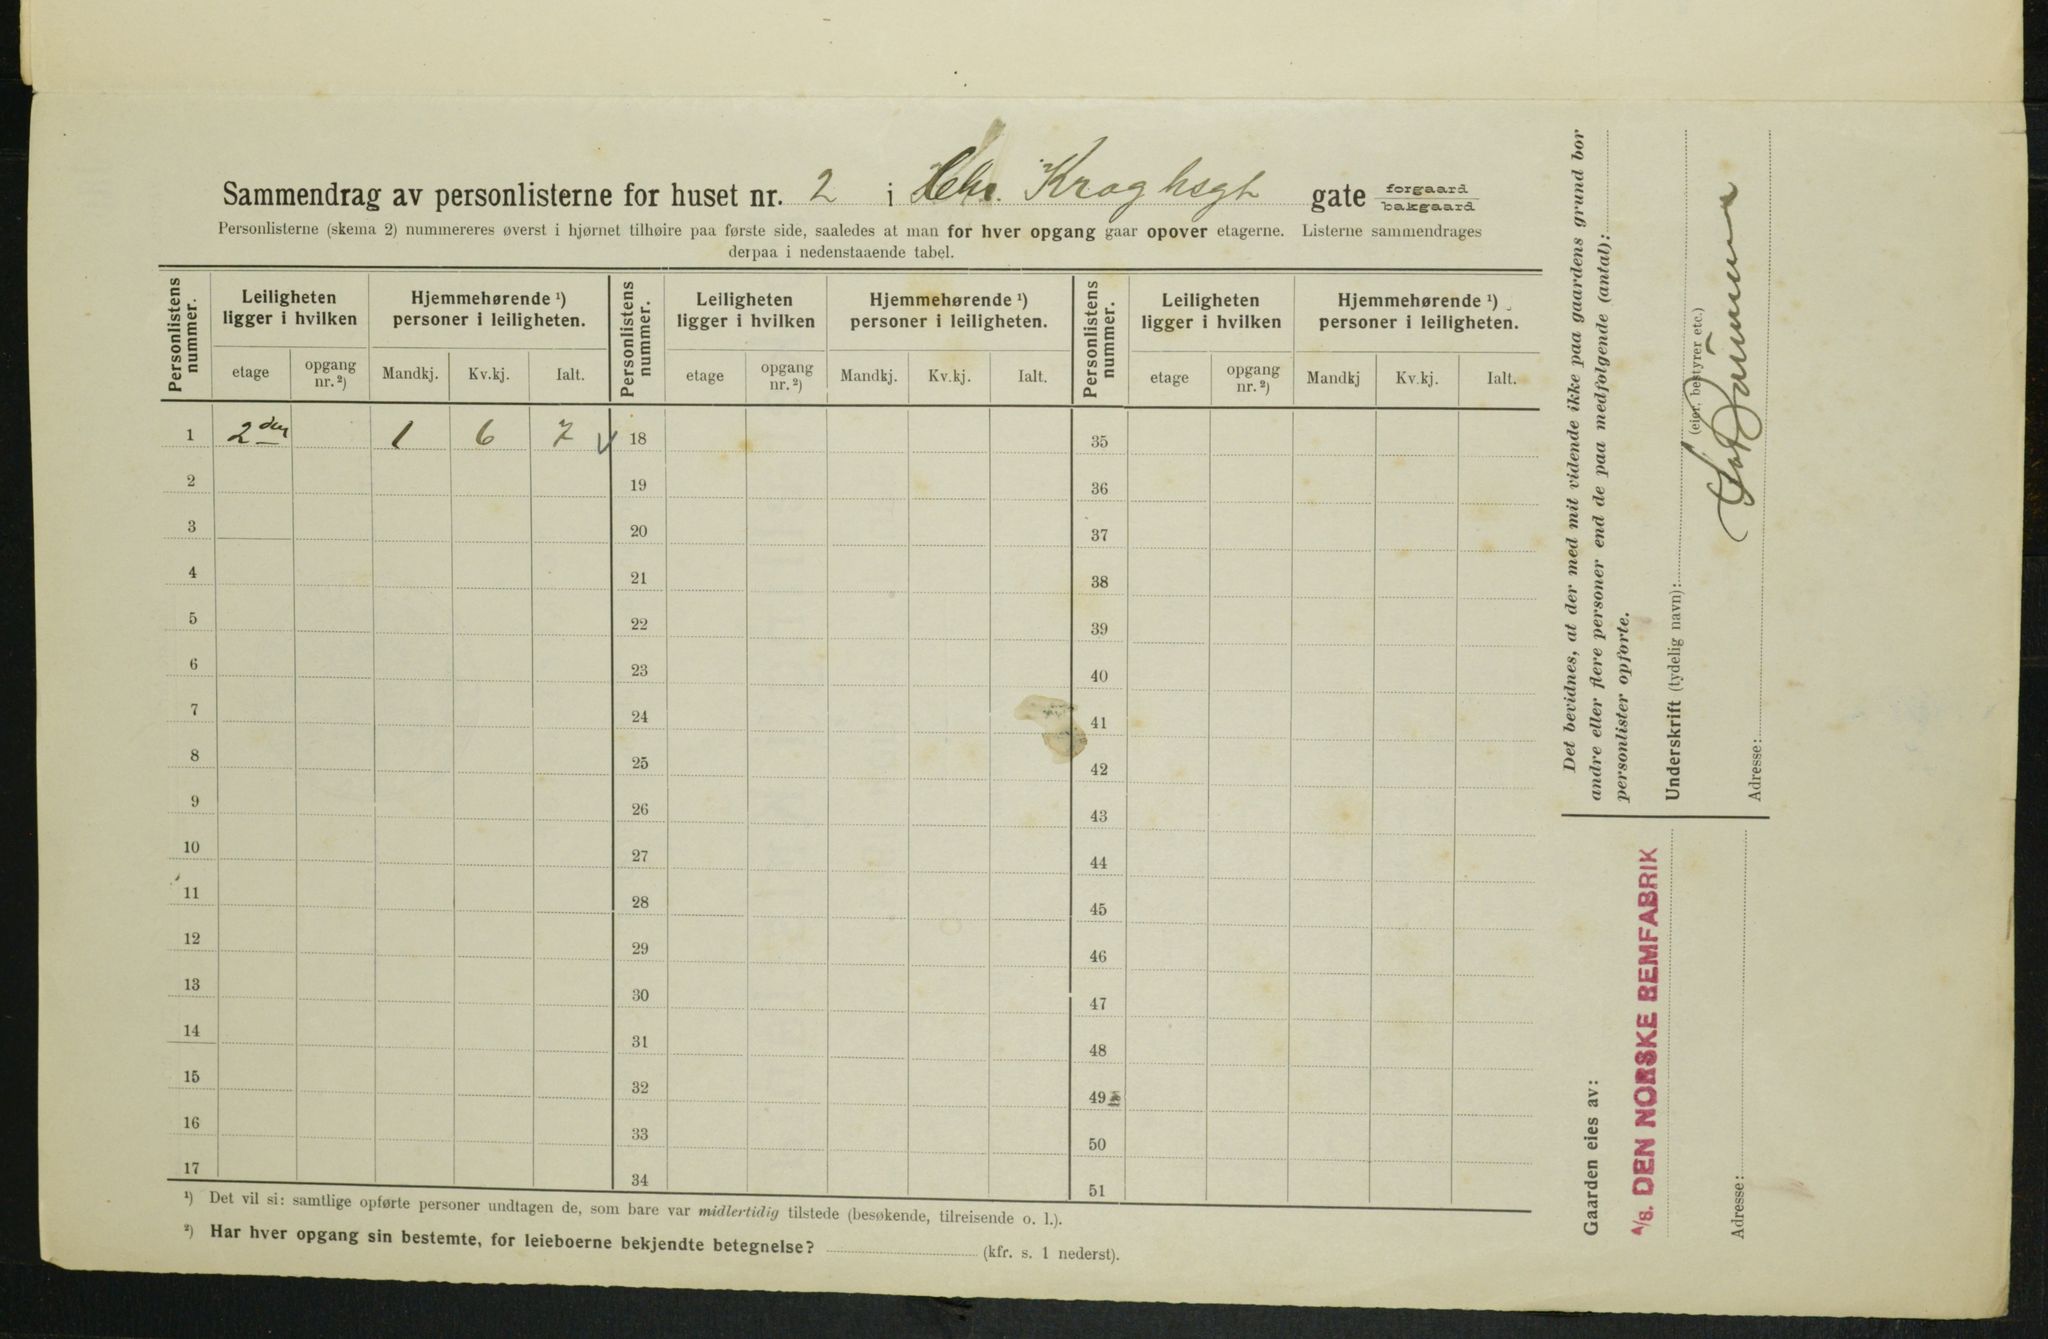 Sammendrag av personlisterne for huset nr. 2 i Chr. Kroghsgt gate forgaard bakgaard
Personlisterne (skema 2) nummereres øverst i hjørnet tilhøire paa første side, saaledes at man for hver opgang gaar opover etagerne. Listerne sammendrages
derpaa i nedenstaaende tabel.
Personlistens nummer. Leiligheten ligger i hvilken Hjemmehørende ¹) personer i leiligheten. Personlistens nummer. Leiligheten ligger i hvilken Hjemmehørende ¹) personer i leiligheten. Personlistens nummer. Leiligheten ligger i hvilken Hjemmehørende ¹) personer i leiligheten.
etage opgang nr. ²) Mandkj. Kv.kj. Ialt. etage opgang nr. ²) Mandkj. Kv.kj. Ialt. etage opgang nr. ²) Mandkj Kv.kj. Ialt.
1 2den 1 6 7 18 35
2 19 36
3 20 37
4 21 38
5 22 39
6 23 40
7 24 41
8 25 42
9 26 43
10 27 44
11 28 45
12 29 46
13 30 47
14 31 48
15 32 49
16 33 50
17 34 51
¹) Det vil si: samtlige opførte personer undtagen de, som bare var midlertidig tilstede (besøkende, tilreisende o. l.).
²) Har hver opgang sin bestemte, for leieboerne bekjendte betegnelse? (kfr. s. 1 nederst).
Det bevidnes, at der med mit vidende ikke paa gaardens grund bor
andre eller flere personer end de paa medfølgende (antal):
personlister opførte.
Underskrift (tydelig navn):
(eier, bestyrer etc.)
Adresse:
Gaarden eies av:
A/S. DEN NORSKE BEMFABRIK
Adresse: